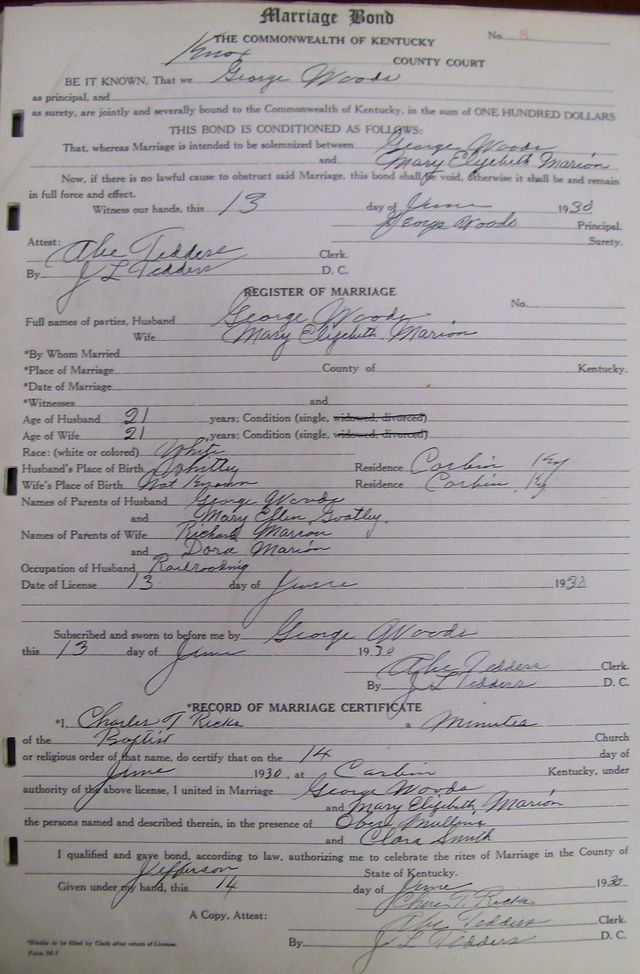 Marriage Bond
No. 8
THE COMMONWEALTH OF KENTUCKY
Knox COUNTY COURT
BE IT KNOWN, That we George Woods
as principal, and
as surety, are jointly and severally bound to the Commonwealth of Kentucky, in the sum of ONE HUNDRED DOLLARS
THIS BOND IS CONDITIONED AS FOLLOWS:
That, whereas Marriage is intended to be solemnized between George Woods
and Mary Elizebeth Marion
Now, if there is no lawful cause to obstruct said Marriage, this bond shall be void, otherwise it shall be and remain
in full force and effect.
Witness our hands, this 13 day of June 1930
George Woods Principal.
Surety.
Attest: Abe Tedders Clerk.
By J L Tedders D. C.
REGISTER OF MARRIAGE
No.
Full names of parties, Husband George Woods
Wife Mary Elizebeth Marion
*By Whom Married
*Place of Marriage County of Kentucky.
*Date of Marriage
*Witnesses and
Age of Husband 21 years; Condition (single, widowed, divorced)
Age of Wife 21 years; Condition (single, widowed, divorced)
Race: (white or colored) White
Husband's Place of Birth Whitley Residence Corbin Ky
Wife's Place of Birth Not Known Residence Corbin, Ky
Names of Parents of Husband George Woods
and Mary Ellen Goatley.
Names of Parents of Wife Richard Marion
and Dora Marion
Occupation of Husband Railroading
Date of License 13 day of June 1930
Subscribed and sworn to before me by George Woods
this 13 day of June 1930
Abe Tedders Clerk.
By J L Tedders D. C.
*RECORD OF MARRIAGE CERTIFICATE
*I, Charles T Ricks a Minutes
of the Baptist Church
or religious order of that name, do certify that on the 14 day of
June 1930, at Corbin Kentucky, under
authority of the above license, I united in Marriage George Woods
and Mary Elizebeth Marion
the persons named and described therein, in the presence of Mullins
and Clara Smith
I qualified and gave bond, according to law, authorizing me to celebrate the rites of Marriage in the County of
Jefferson State of Kentucky.
Given under my hand, this 14 day of June 1930
Chas T. Ricks
A Copy, Attest: Abe Tedders Clerk.
By J L Tedders D. C.
*Blanks to be filed by Clerk after return of License.